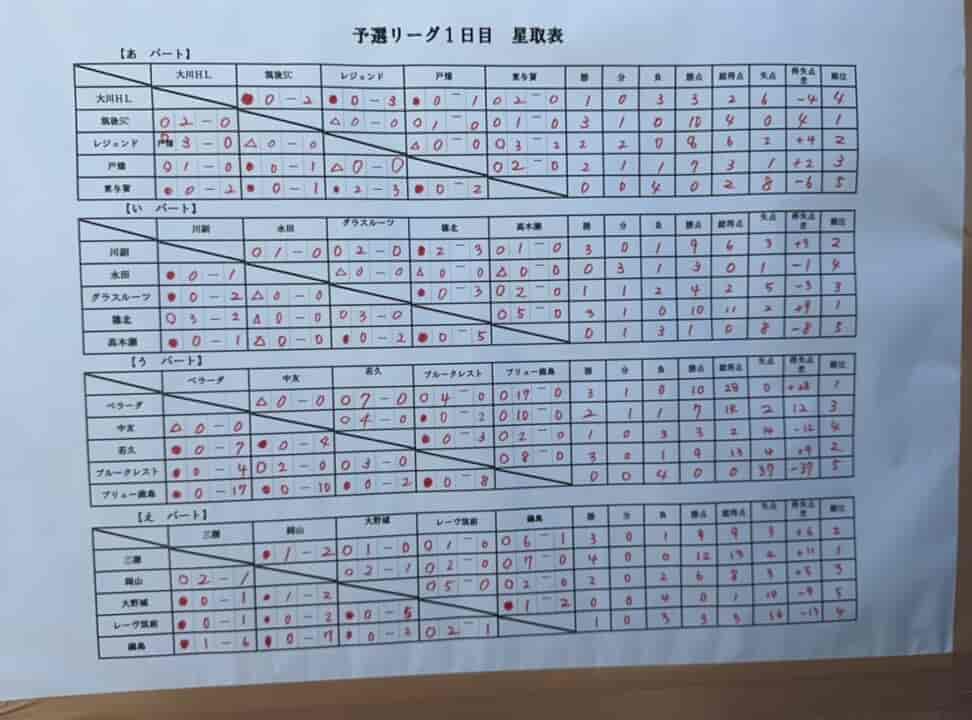 予選リーグ１日目 星取表
【あ パート】
大川ＨＬ 筑後SC レジェンド 戸畑 東与賀 勝 分 負 勝点 総得点 失点 得失点差 順位
大川ＨＬ ●0-2 ●0-3 ●0-1 ○2-0 1 0 3 3 2 6 -4 4
筑後SC ○2-0 △0-0 ○1-0 ○1-0 3 1 0 10 4 0 4 1
レジェンド ○3-0 △0-0 △0-0 ○3-2 2 2 0 8 6 2 +4 2
戸畑 ○1-0 ●0-1 △0-0 ○2-0 2 1 1 7 3 1 +2 3
東与賀 ●0-2 ●0-1 ●2-3 ●0-2 0 0 4 0 2 8 -6 5
【い パート】
川副 永田 グラスルーツ 鏡北 高木瀬 勝 分 負 勝点 総得点 失点 得失点差 順位
川副 ○1-0 ○2-0 ●2-3 ○1-0 3 0 1 9 6 3 +3 2
永田 ●0-1 △0-0 △0-0 △0-0 0 3 1 3 0 1 -1 4
グラスルーツ ●0-2 △0-0 ●0-3 ○2-0 1 1 2 4 2 5 -3 3
○3-2 △0-0 ○3-0 ○5-0 3 1 0 10 11 2 +9 1
高木瀬 ●0-1 △0-0 ●0-2 ●0-5 0 1 3 1 0 8 -8 5
【う パート】
ベラーダ 中友 若久 ブルークレスト ブリュー鍋島 勝 分 負 勝点 総得点 失点 得失点差 順位
ベラーダ △0-0 ○7-0 ○4-0 ○17-0 3 1 0 10 28 0 +28 1
中友 △0-0 ○4-0 ●0-2 ○10-0 2 1 1 7 14 2 12 3
若久 ●0-7 ●0-4 ●0-3 ○2-0 1 0 3 3 2 14 -12 4
ブルークレスト ●0-4 ○2-0 ○3-0 ○8-0 3 0 1 9 13 4 +9 2
ブリュー鍋島 ●0-17 ●0-10 ●0-2 ●0-8 0 0 4 0 0 37 -37 5
【え パート】
三瀬 岡山 大野城 レーヴ筑前 鍋島 勝 分 負 勝点 総得点 失点 得失点差 順位
三瀬 ●1-2 ○1-0 ○1-0 ○6-1 3 0 1 9 9 3 +6 2
岡山 ○2-1 ○2-1 ○2-0 ○7-0 4 0 0 12 13 2 +11 1
大野城 ●0-1 ●1-2 ○5-0 ○2-0 2 0 2 6 8 3 +5 3
レーヴ筑前 ●0-1 ●0-2 ●0-5 ●1-2 0 0 4 0 1 10 -9 5
鍋島 ●1-6 ●0-7 ●0-2 ○2-1 1 0 3 3 3 16 -13 4